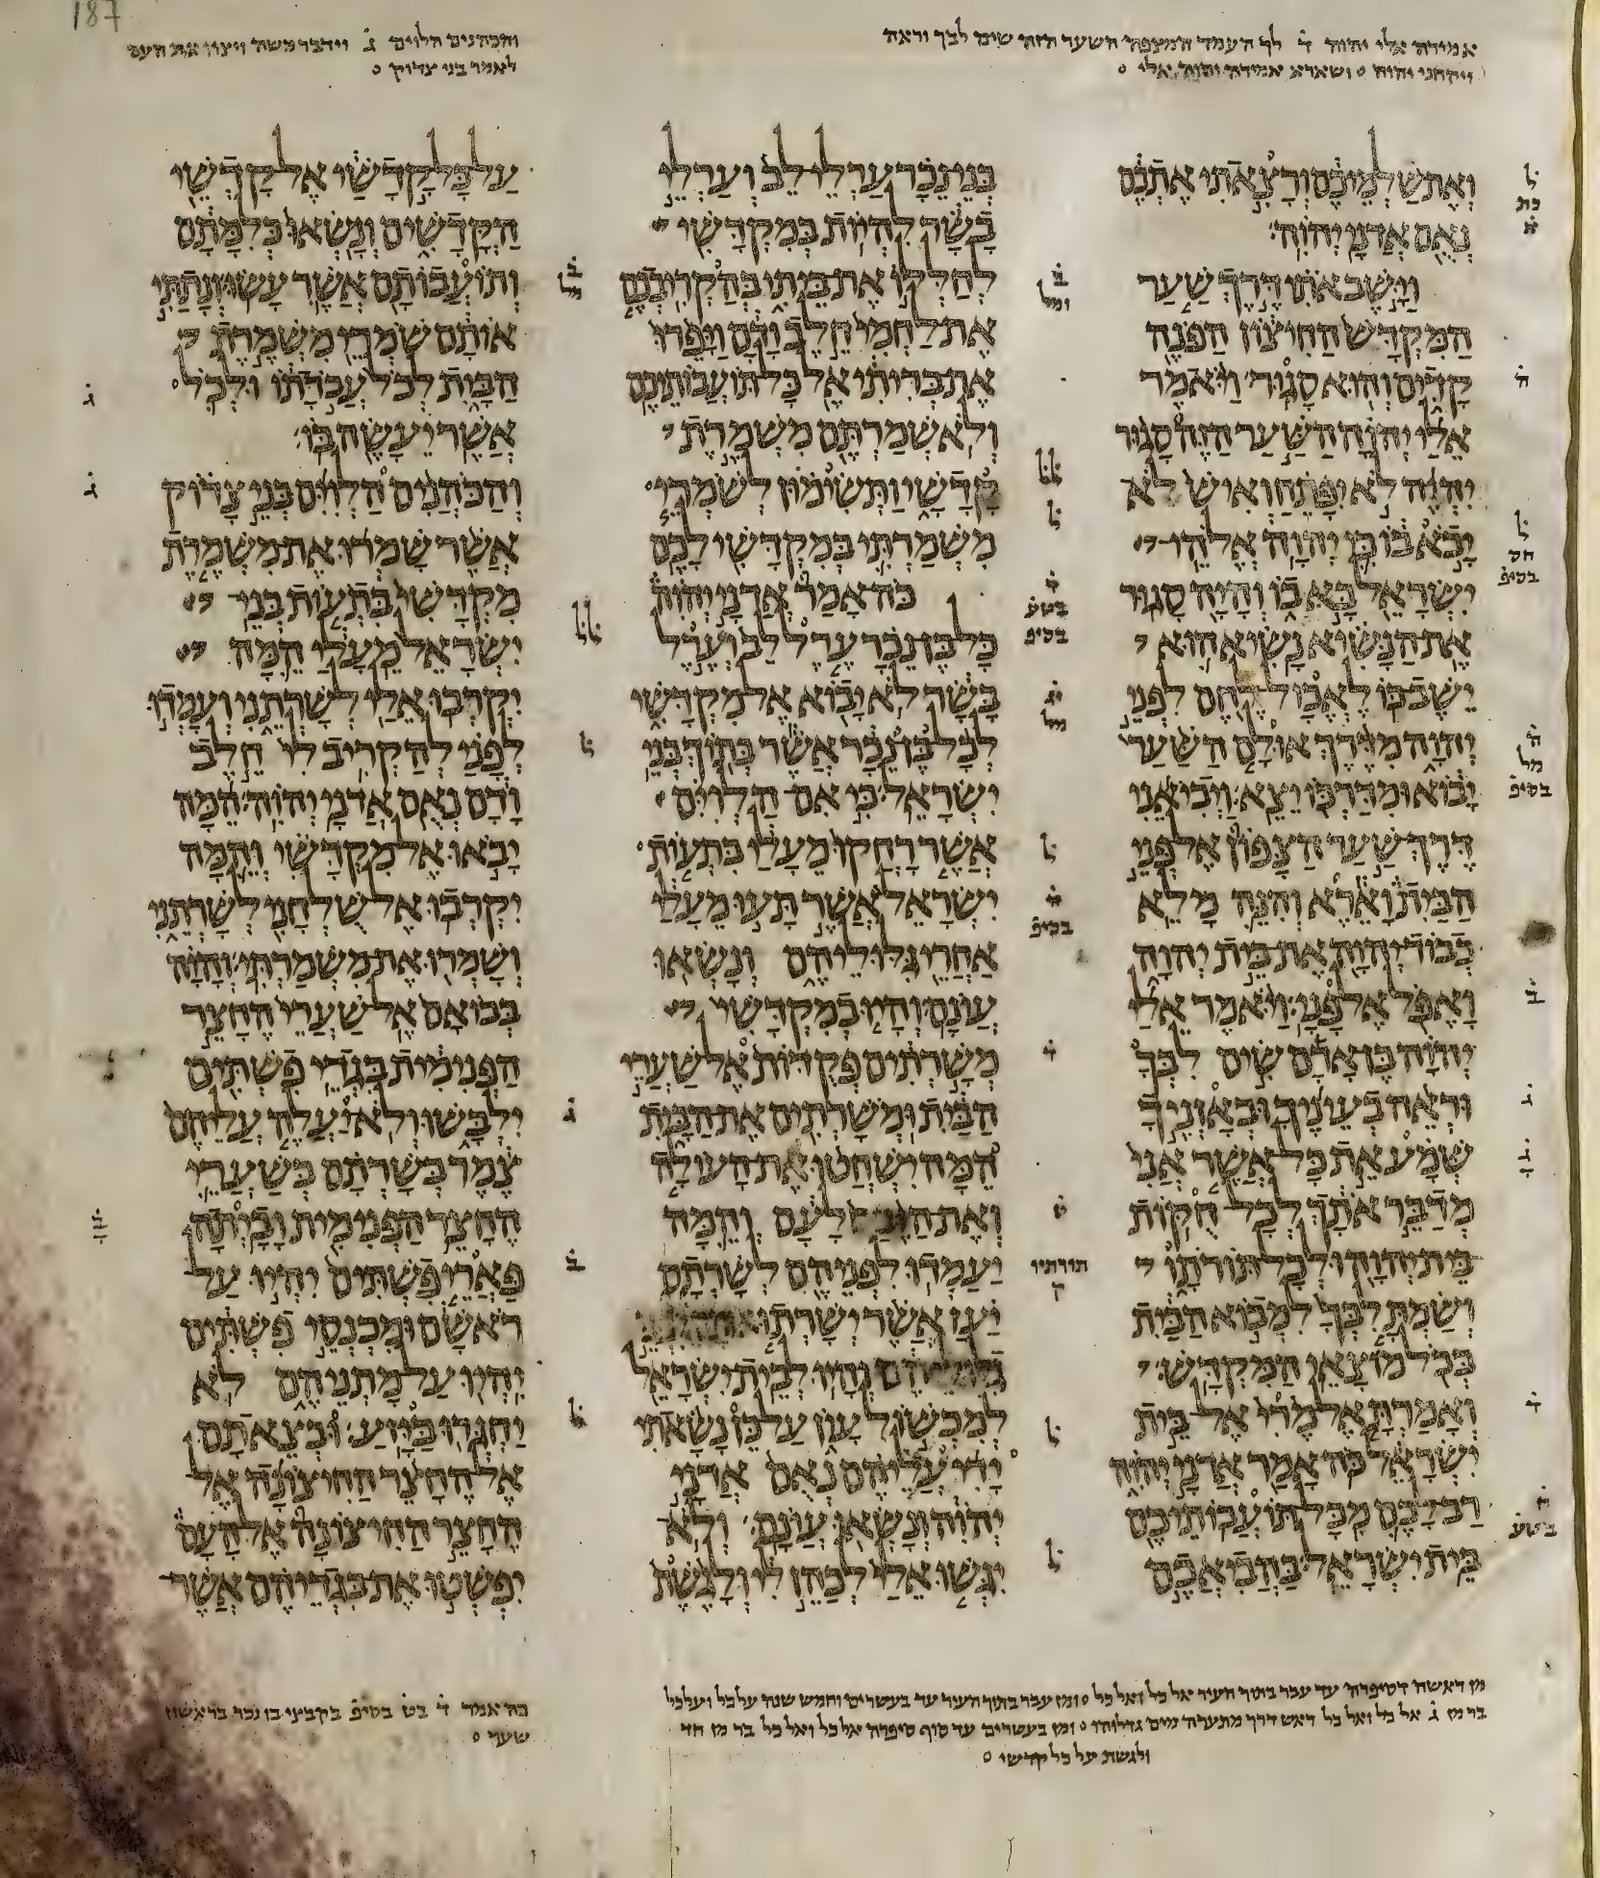 אמירה אלי יהוה ד לך העמד המצפה השער הזה שים לבך וראה
ויקחני יהוה ושארא אמירה יהוה אלי
והכהנים הלוים ג וידבר משה ויצוו את העם
לאמר בני צדוק
ואת שלמיכם ורצאתי אתכם
נאם אדני יהוה
וישב אתי דרך שער
המקדש החיצון הפנה
קדים והוא סגור ויאמר
אלי יהוה השער הזה סגור
יהיה לא יפתח ואיש לא
יבא בו כי יהוה אלהי
ישראל בא בו והיה סגור
את הנשיא נשיא הוא
ישב בו לאכול לחם לפני
יהוה מדרך אולם השער
יבוא ומדרכו יצא ויביאני
דרך שער הצפון אל פני
הבית וארא והנה מלא
כבוד יהוה את בית יהוה
ואפל אל פני ויאמר אלי
יהוה בן אדם שים לבך
וראה בעיניך ובאזניך
שמע את כל אשר אני
מדבר אתך לכל חקות
בית יהוה ולכל תורתו
ושמת לבך למבוא הבית
בכל מוצאי המקדש
ואמרת אל מרי אל בית
ישראל כה אמר אדני יהוה
רב לכם מכל תועבותיכם
בית ישראל בהביאכם
בני נכר ערלי לב וערלי
בשר להיות במקדשי
לחללו את ביתי בהקריבכם
את לחמי חלב ודם ויפרו
את בריתי אל כל תועבותיכם
ולא שמרתם משמרת
קדשי ותשימון לשמרי
משמרתי במקדשי לכם
כה אמר אדני יהוה
כל בן נכר ערל לב וערל
בשר לא יבוא אל מקדשי
לכל בן נכר אשר בתוך בני
ישראל כי אם הלוים
אשר רחקו מעלי בתעות
ישראל אשר תעו מעלי
אחרי גלוליהם ונשאו
עונם והיו במקדשי
משרתים פקדות אל שערי
הבית ומשרתים את הבית
המה ישחטו את העולה
ואת הזבח לעם והמה
יעמדו לפניהם לשרתם
יען אשר ישרתו אותם לפני
גלוליהם והיו לבית ישראל
למכשול עון על כן נשאתי
ידי עליהם נאם אדני
יהוה ונשאו עונם ולא
יגשו אלי לכהן לי ולגשת
על כל קדשי אל קדשי
הקדשים ונשאו כלמתם
ותועבותם אשר עשו ונתתי
אותם שמרי משמרת
הבית לכל עבדתו ולכל
אשר יעשה בו
והכהנים הלוים בני צדוק
אשר שמרו את משמרת
מקדשי בתעות בני
ישראל מעלי המה
יקרבו אלי לשרתני ועמדו
לפני להקריב לי חלב
ודם נאם אדני יהוה המה
יבאו אל מקדשי והמה
יקרבו אל שלחני לשרתני
ושמרו את משמרתי והיה
בבואם אל שערי החצר
הפנימית בגדי פשתים
ילבשו ולא יעלה עליהם
צמר בשרתם בשערי
החצר הפנימית וביתה
פארי פשתים יהיו על
ראשם ומכנסי פשתים
יהיו על מתניהם לא
יחגרו ביזע ובצאתם
אל החצר החיצונה אל
החצר החיצונה אל העם
יפשטו את בגדיהם אשר
בר מן ג אל כל ואל כל
ולגשת על כל קדשי
כה אמר ד בט בסיפ